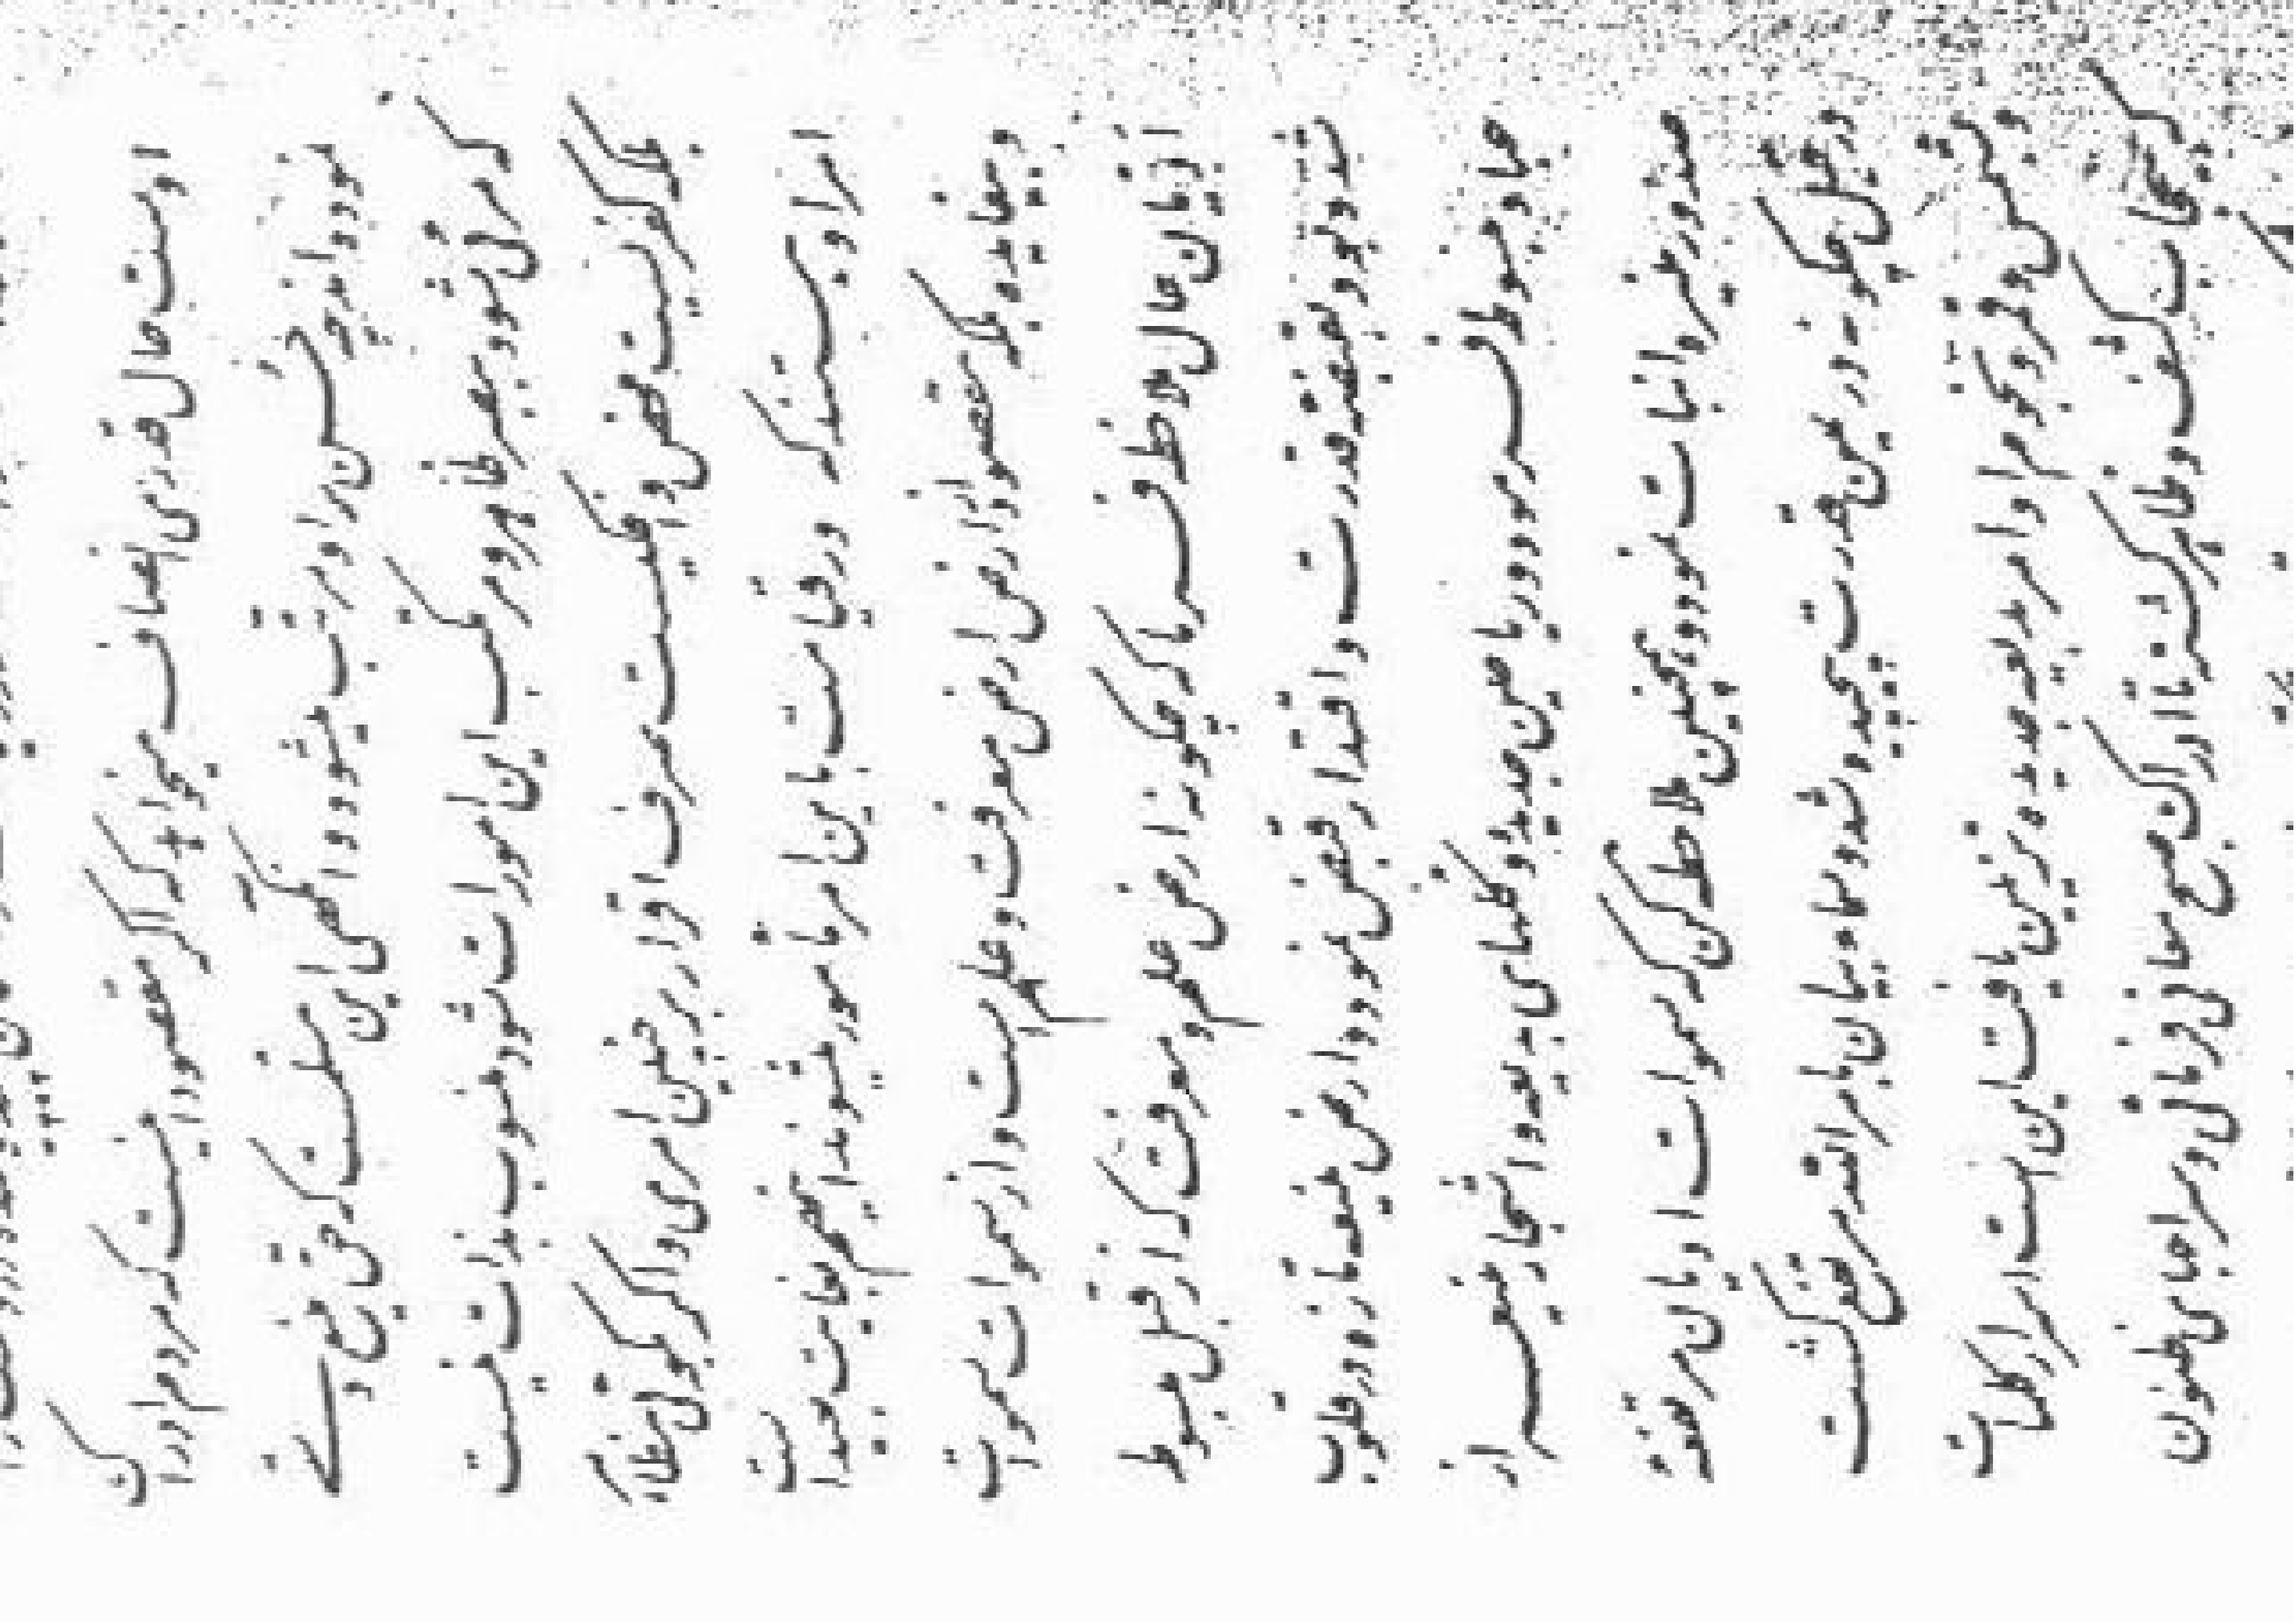 اوست حال قدری انصاف میخواهد که اگر مقصود اینست که مردم ادراک
نموده‌اند چه حسن بر او مترتب میشود و وانگهی این مسلم است که حق منیع دستی
که مرئی شود ببصر ظاهر و مرتکب این امورات شود منسوب بذات نیست
بلکه کفریست محض و افکیست صرف اقرار بر چنین امری و اگر بگوئی مظاهر
امر او هستند که در قیامت باین امر مأمور میشوند اینهم بغایت بعید است
و بیفایده بلکه مقصود از ارض ارض معرفت و علم است و از سموات سموات
ادیان حال ملاحظه فرما که چگونه ارض علم و معرفت که از قبل مبسوط
شده بود بقبضهٔ قدرت و اقتدار قبض نمود و ارض منیعهٔ تازه در قلوب
عباد مبسوط فرمود و ریاحین جدیده و گلهای بدیعه و اشجار منیعه از
صدور منیره انبات نمود و همچنین ملاحظه کن که سموات ادیان مرتفعه
در قبل چگونه در یمین قدرت پیچیده شد و سماء بیان بامر الله مرتفع گشت
و بشمس و قمر و نجوم اوامر بدیعهٔ جدیده تزیین یافت این است اسرار کلمات
که بیحجاب کشف و ظاهر گشته تا ادراک صبح معانی فرمائی و سراجهای ظنون